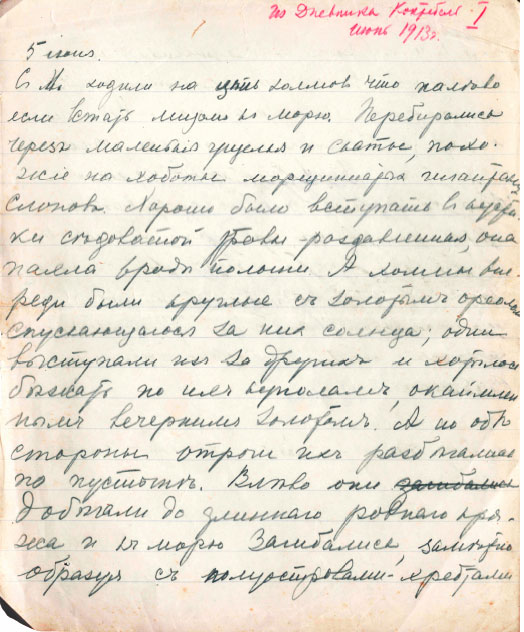 Из Дневника Коктебель I
Июнь 1913г.
5 июня.
С М. ходили на цепь холмов что налево
если встать лицом к морю. Перебирались
через маленькия ущелья и скаты, похо-
жіе на хоботы морщинистых гигантских
слонов. Хорошо было вступать в
ки седоватой травы раздавленная, она
пахла вроде полыни А холмы впе-
реди были круглые съ золотымъ ореолом
спускающагося за них солнца; одни
выступали изъ за других и хотелось
бежать по их куполамъ, окаймлен
нымъ вечерним золотомъ. А по обе
стороны отроги их разбегались
по пустыне. Влево они загибались
добегали до длиннаго ровнаго кря-
жа и къ морю загибались,
образуя съ полуостровами-хребтами